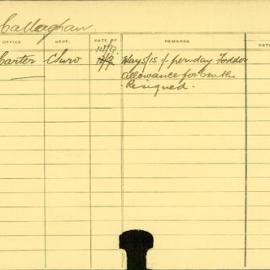 Callaghan
OFFICE DEPT. DATE OF REMARKS DATE
Carter Chwo Way 5/15/- per day Fodder
allowance for 6 mths
Resigned.